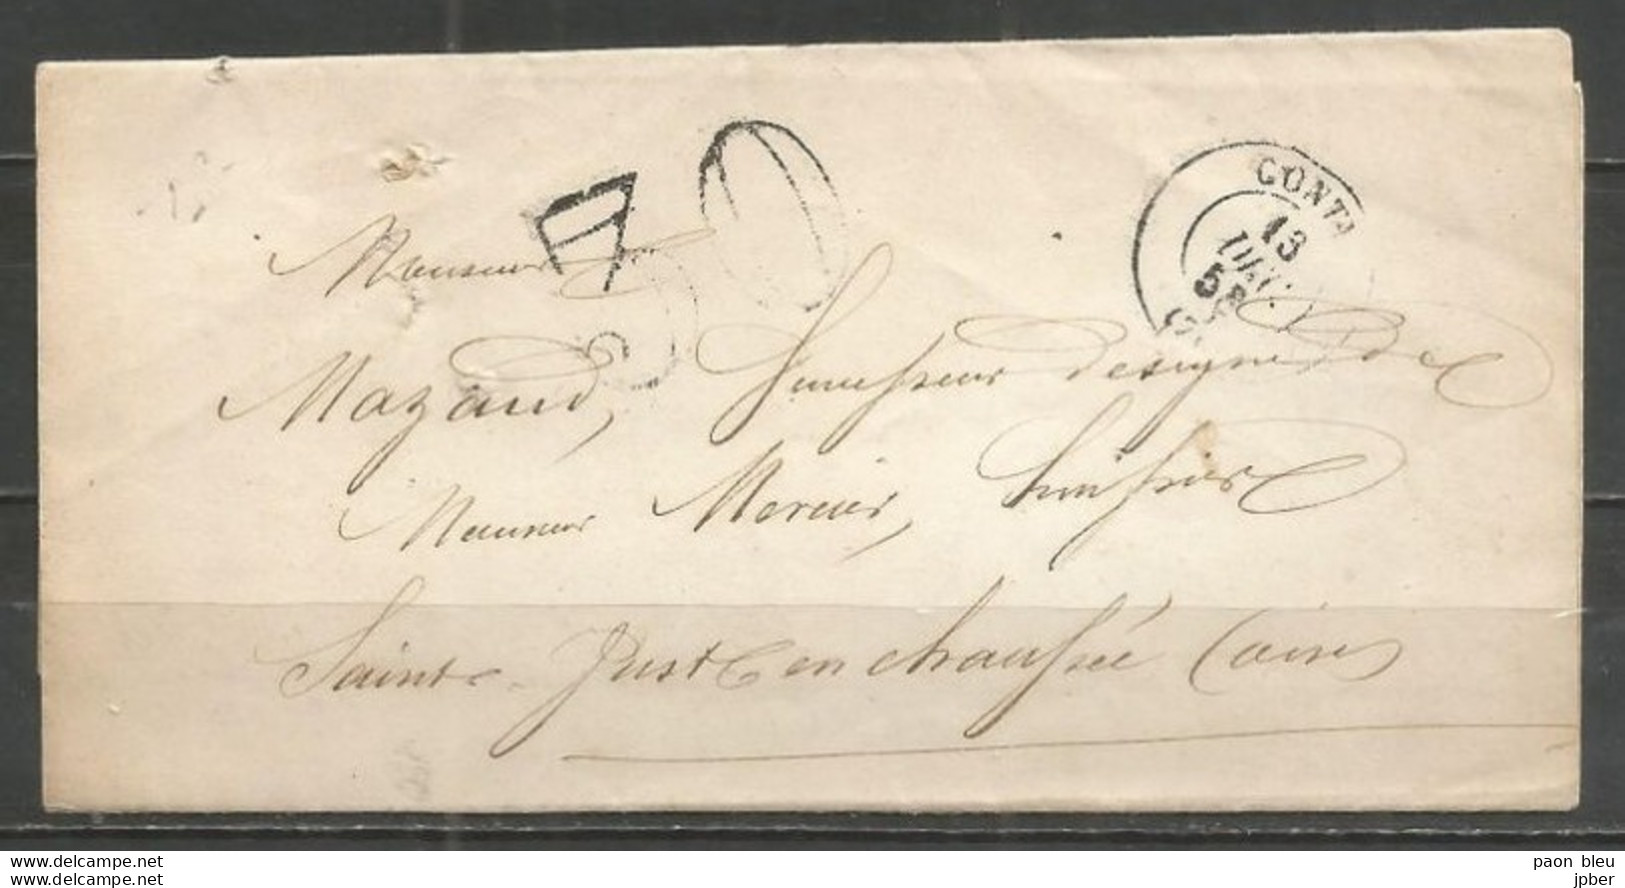 CONT
13
58
Monsieur
Mazaud, Successeur désigné de
Monsieur Mercier, huissier
Saint-Just en chaussée (oise)
www.delcampe.net
www.delcampe.net
paon bleu
jpber